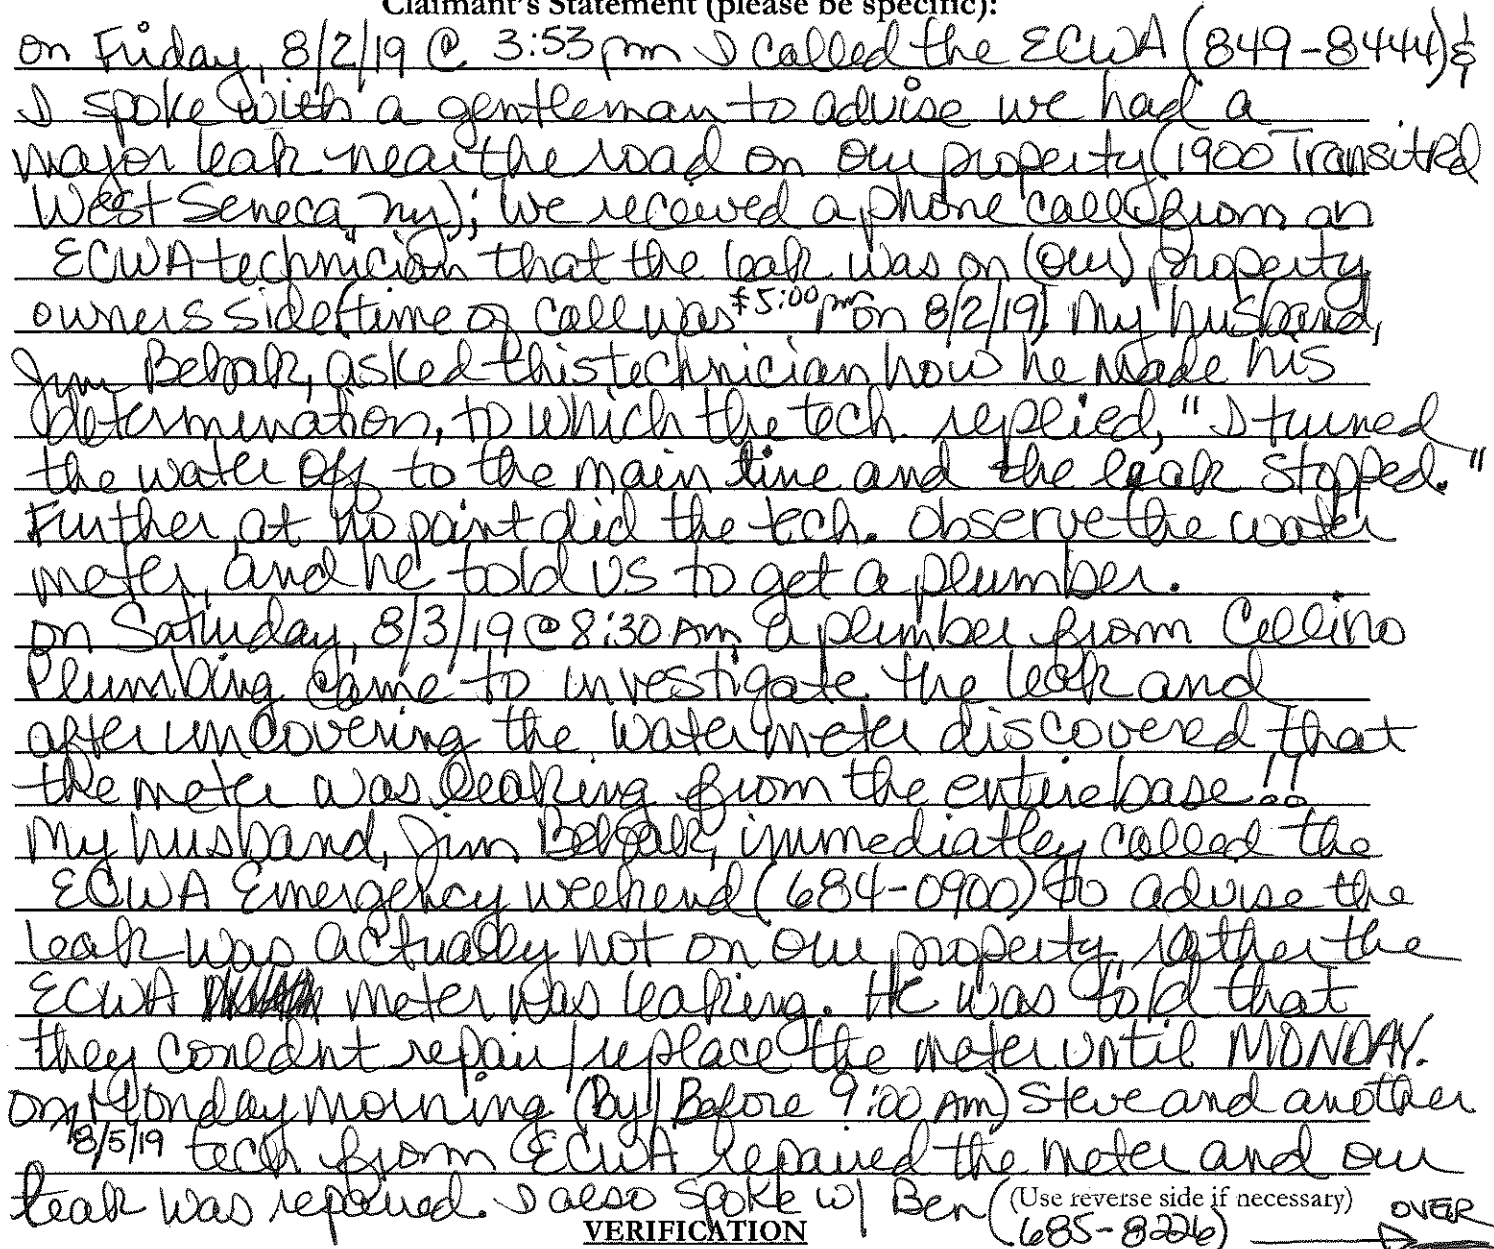 Claimant's Statement (please be specific):
on Friday, 8/2/19 @ 3:53pm I called the ECWA (849-8444) &
I spoke with a gentleman to advise we had a
major leak near the road on our property (1900 Transit Rd
West Seneca, ny); we received a phone call from an
ECWA technician that the leak was on (our) property
owners side (time of call was 5:00 pm on 8/2/19). My husband,
Jim asked this technician how he made his
determination, to which the tech. replied, "I turned
the water off to the main line and the leak stopped."
Further, at no point did the tech. observe the water
meter, and he told us to get a plumber.
on Saturday, 8/3/19 @ 8:30 Am, a plumber from Cellino
Plumbing came to investigate the leak and
after uncovering the water meter discovered that
the meter was leaking from the entire base!!
My husband, Jim immediatley called the
ECWA Emergency weekend (684-0900) to advise the
leak was actually not on our property, rather the
ECWA meter was leaking. He was told that
they couldnt repair/replace the meter until MONDAY.
on Monday morning (By/Before 9:00 Am) Steve and another
8/5/19 tech from ECWA repaired the meter and our
leak was repaired. I also spoke w/ Ben (Use reverse side if necessary) OVER
VERIFICATION (685-8226)